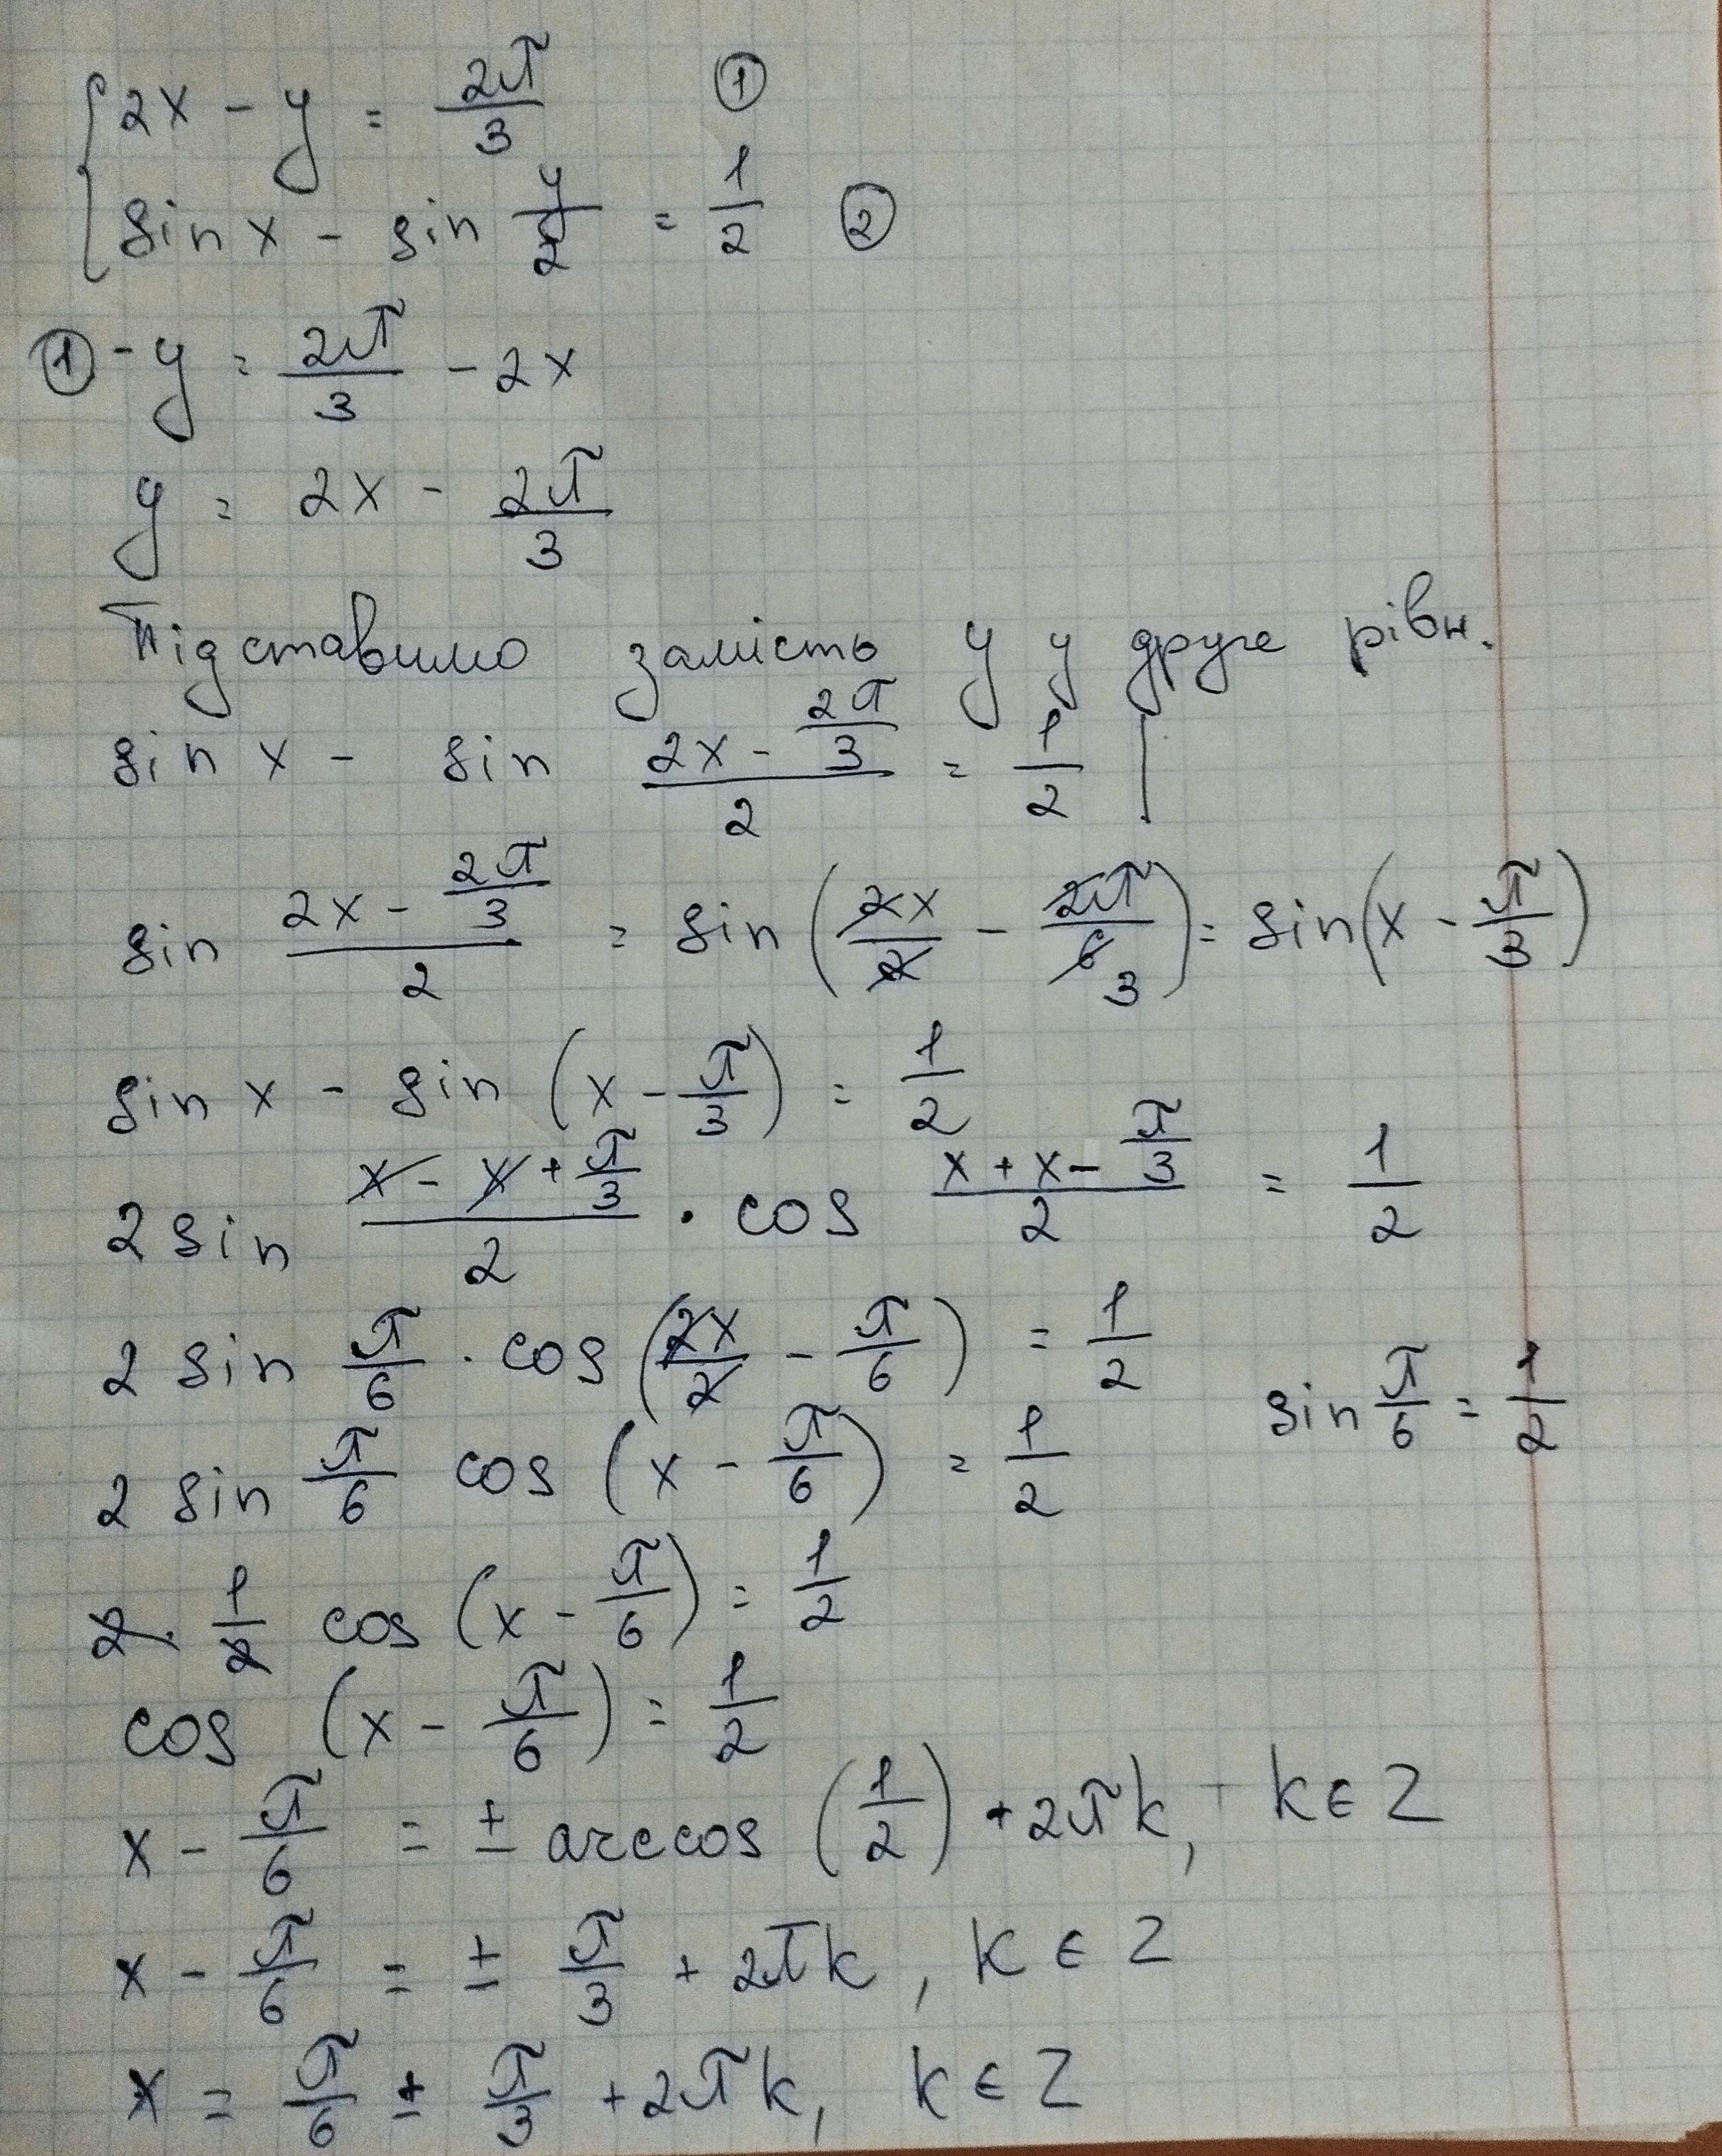 2x - y = 2π/3 ①
sin x - sin y/2 = 1/2 ②
① -y = 2π/3 - 2x
y = 2x - 2π/3
Підставимо замість y у друге рівн.
sin x - sin (2x - 2π/3)/2 = 1/2 |
sin (2x - 2π/3)/2 = sin(2x/2 - 2π/6 3) = sin(x - π/3)
sin x - sin (x - π/3) = 1/2
2 sin (x - x + π/3)/2 · cos (x + x - π/3)/2 = 1/2
2 sin π/6 · cos(2x/2 - π/6) = 1/2
sin π/6 = 1/2
2 sin π/6 cos (x - π/6) = 1/2
2 · 1/2 cos (x - π/6) = 1/2
cos (x - π/6) = 1/2
x - π/6 = ± arccos (1/2) + 2πk, k ∈ Z
x - π/6 = ± π/3 + 2πk, k ∈ Z
x = π/6 ± π/3 + 2πk, k ∈ Z